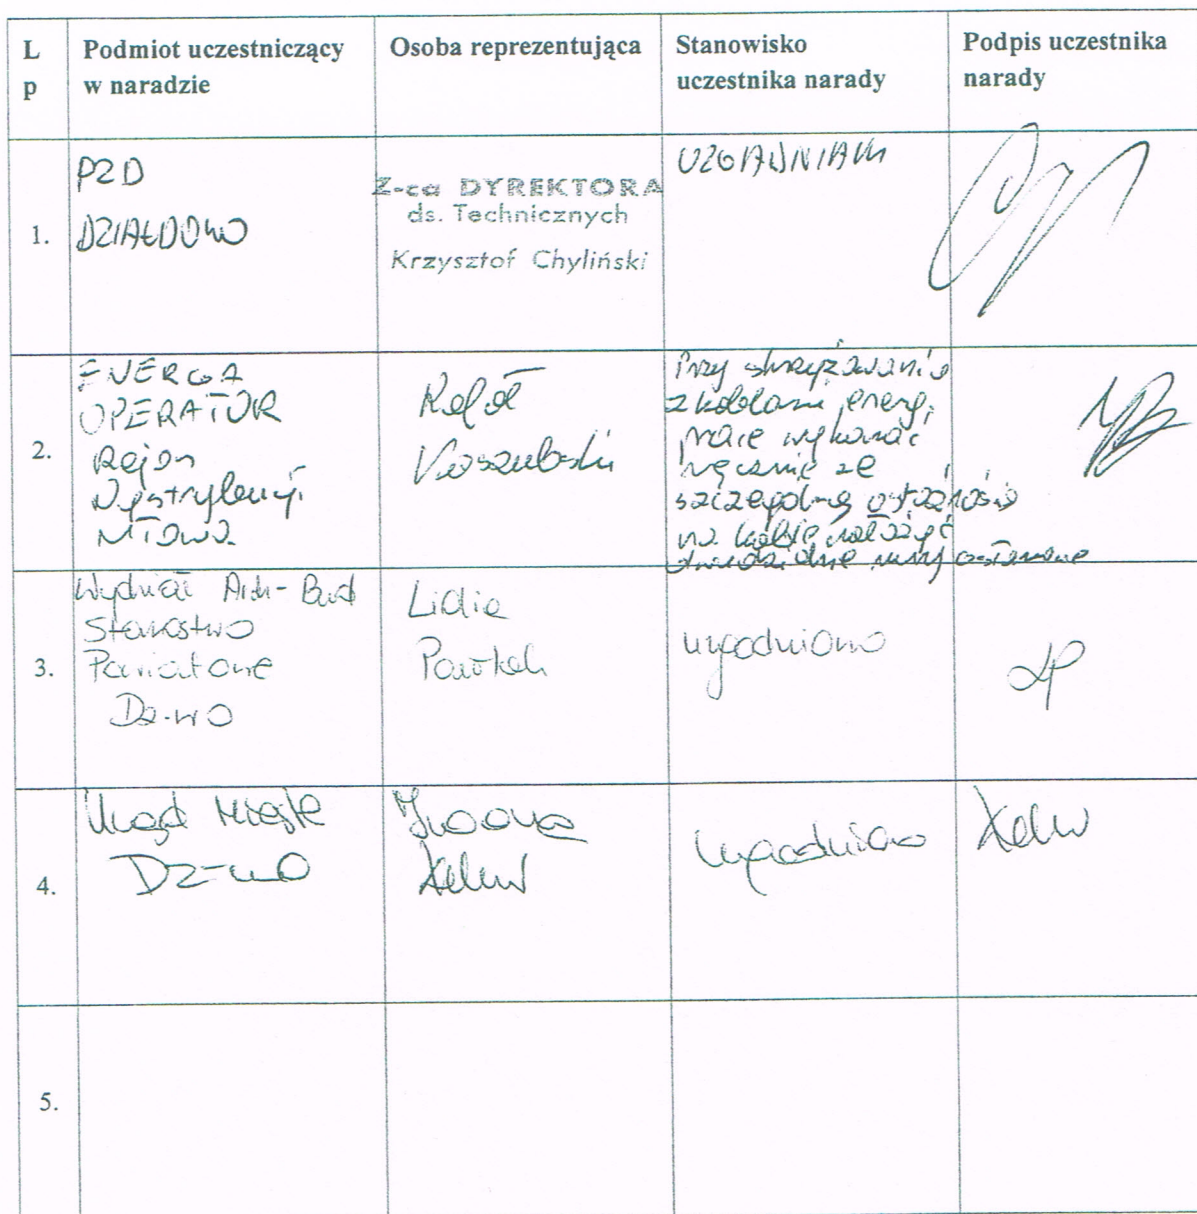 L
p
Podmiot uczestniczący
w naradzie
Osoba reprezentująca
Stanowisko
uczestnika narady
Podpis uczestnika
narady
1.
PZD
DZIAŁDOWO
Z-ca DYREKTORA
ds. Technicznych
Krzysztof Chyliński
UZGADNIAM
2.
ENERGA
OPERATOR
Rejon
Dystrybucji
Mława
Rafał
Przy skrzyżowaniu
z kablami energ.
prace wykonać
ręcznie ze
szczególną ostrożnością
na kable nałożyć
dwudzielne rury osłonowe
3.
Wydział Arch-Bud
Starostwo
Powiatowe
Dz-wo
Lidia
uzgodniono
4.
Urząd Miasta
Dz-wo
Iwona
uzgodniono
5.